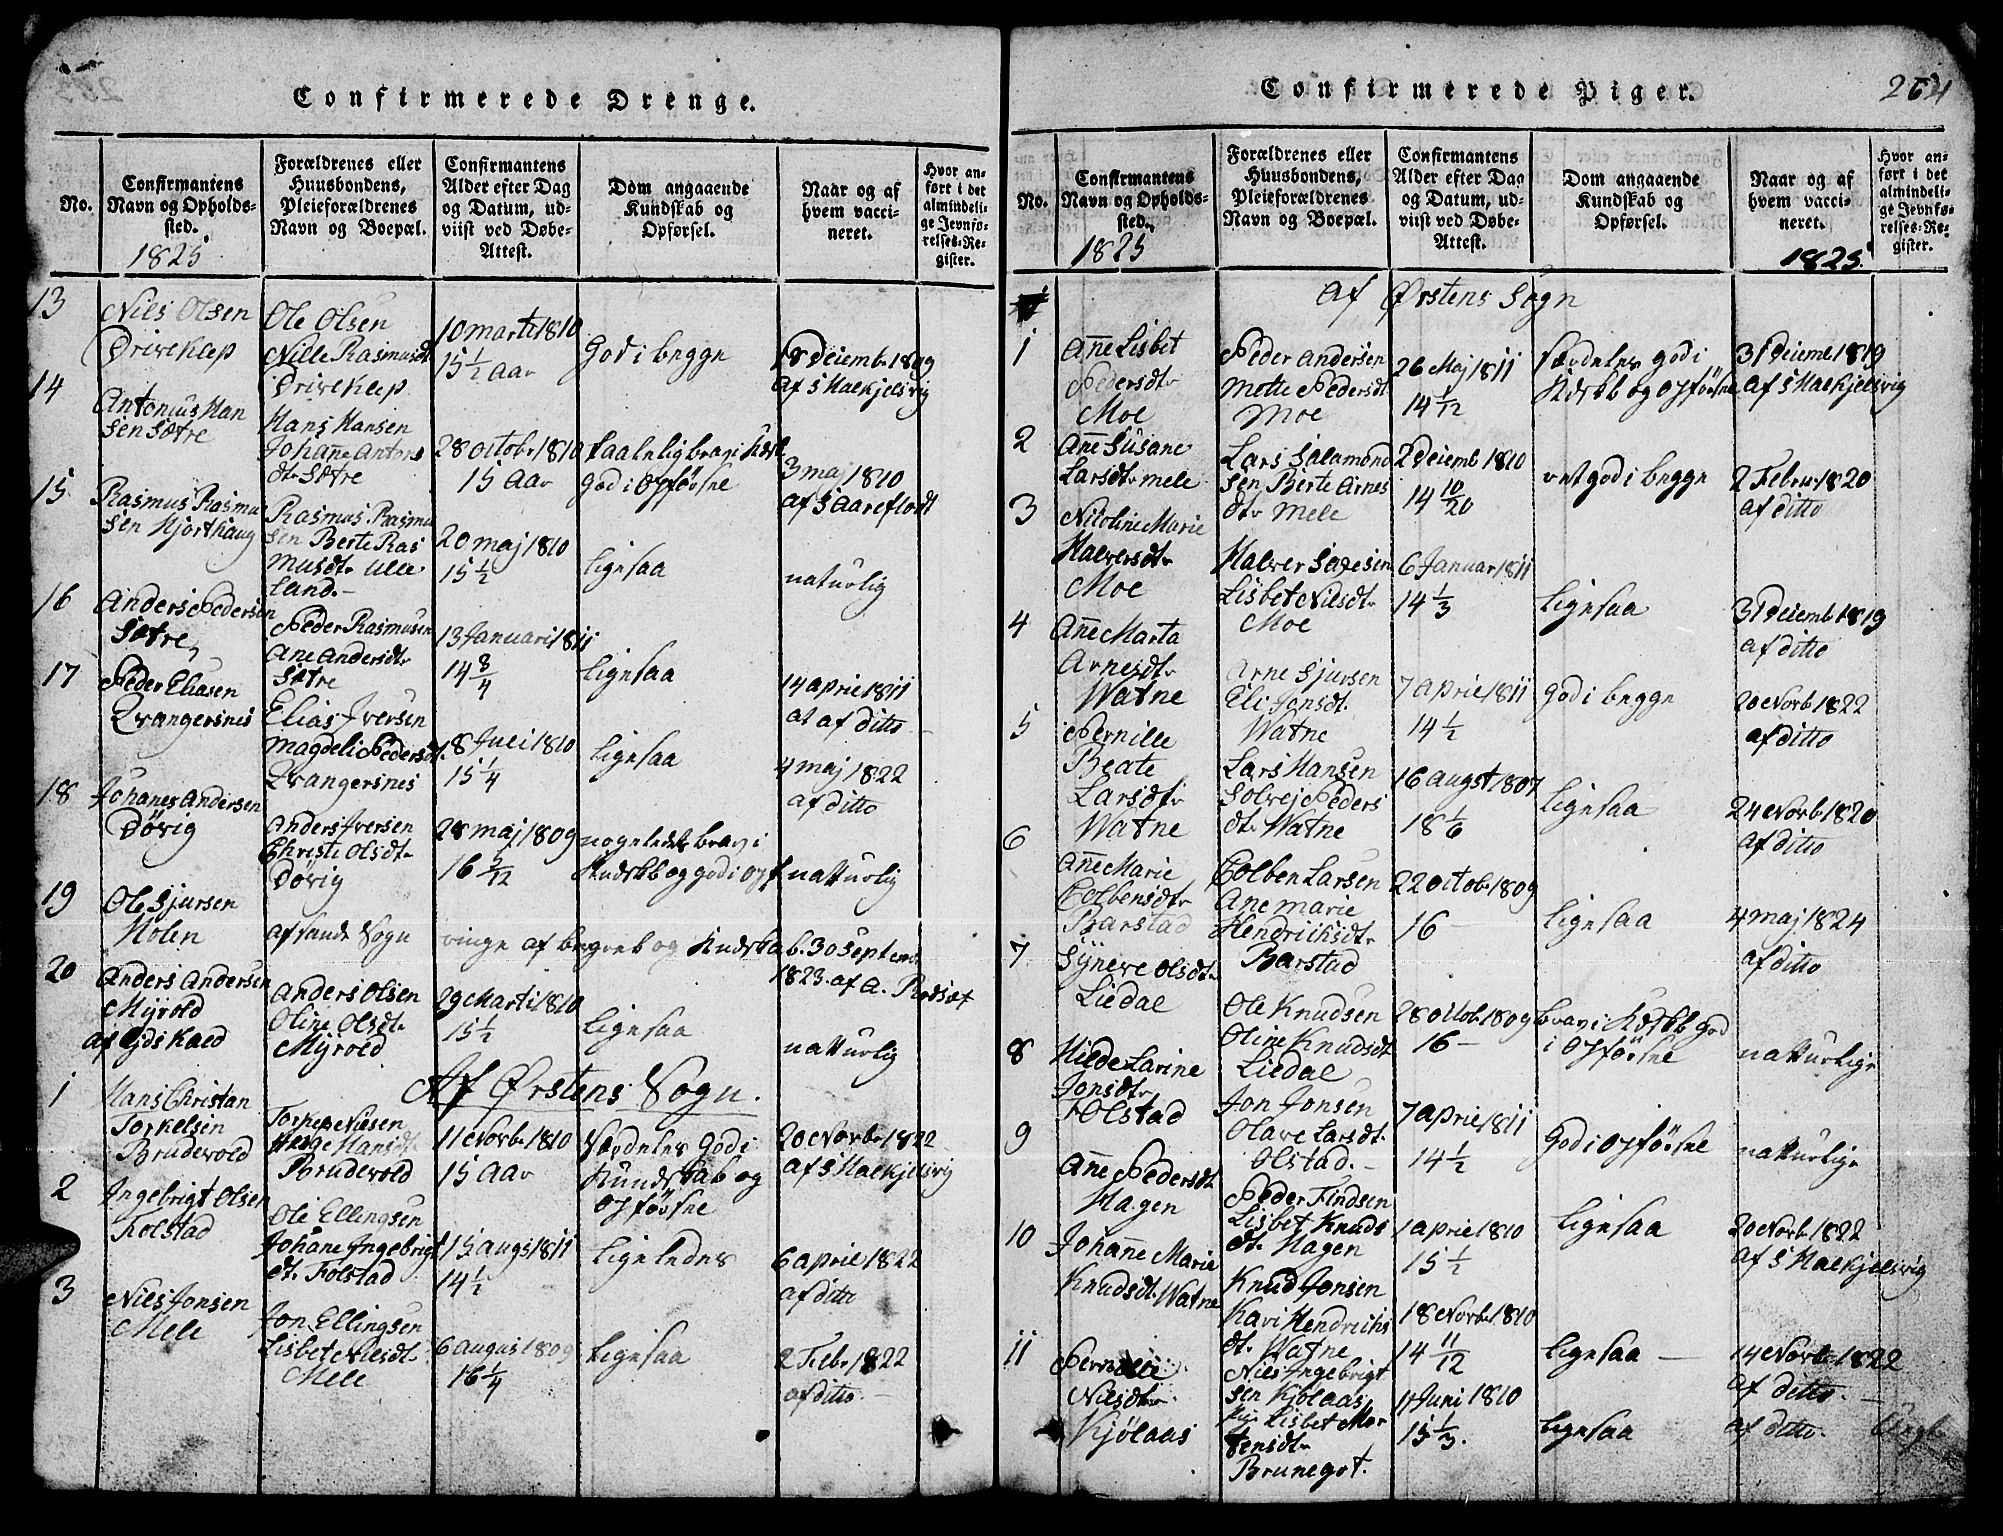 Confirmerede Drenge.
No.
Confirmantens Navn og Opholdssted.
1825
Forældrenes eller Huusbondens, Pleieforældrenes Navn og Boepæl.
Confirmantens Alder efter Dag og Datum, udviist ved Døbe-Attest.
Dom angaaende Kundskab og Opførsel.
Naar og af hvem vaccineret.
Hvor anført i det almindelige Jevnførelses-Register.
13
Nils Olsen
Driveklep
Ole Olsen
Nille Rasmusdt
Driveklep
10 marti 1810
15 1/2 Aar
God i begge
18 Deiemb 1809
af S Maekjelsvig
14
Antonius Han
sen Sætre
Hans Hansen
Johane Antons
dtr Sætre
28 octobr 1810
15 Aar
taalelig brav i Kdsk
God i Opførsne
3 maj 1810
af S Aareflodt
15
Rasmus Rasmu
sen Hjorthaug
Rasmus Rasmu
sen Berte Ras
musdtr Ulle
land.
20 maj 1810
15 1/2
ligesaa
naturlig
16
Anders Pedersen
Sætre
Peder Rasmusen
Ane Andersdtr
Sætre
13 Januari 1811
14 3/4
ligesaa
14 april 1811
af ditto
17
Peder Eliasen
Qvangersnes
Elias Iversen
Magdeli Pedersdt.
Qvangersnes
8 Juli 1810
15 1/4
ligesaa
4 maj 1822
af ditto
18
Johanes Andersen
Døvig
Anders Iversen
Christi Olsdtr
Døvig
28 maj 1809
16 5/12
nogeledes brav i
Kudskb og god i Opf
naturlig
19
Ole Sjursen
Holen
af Sande Sogn
ringe af begreb og Kudska
b. 30 Septemb
1823. af A. Rodsæt
20
Anders Andersen
Myrold
Anders Olsen
Oline Olsdtr
Myrold
29 Marti 1810
15 1/2
ligesaa
naturlig
Af Ørstens Sogn.
1
Hans Christan
Torkelsen
Brudevold
Torkel Nilsen
Hansdt
Brudevold
11 Novbr 1810
15 Aar
Særdeles God i
Kundskab og
opførsne
20 Novbr 1822
af S Maekjelsvig
2
Ingebrigt Olsen
Folstad
Ole Ellingsen
Johane Ingebrigt
dt. Folstad
15 augs 1811
14 1/2
ligeledes
6 april 1822
af ditto
3
Nils Jonsen
Mele
Jon Ellingsen
Lisbet Nilsdtr
Mele
6 augus 1809
16 1/4
ligesaa
2 Febr 1822
af ditto
Confirmerede Piger.
264
No.
Confirmantens Navn og Opholdssted.
1825
Forældrenes eller Huusbondens, Pleieforældrenes Navn og Boepæl.
Confirmantens Alder efter Dag og Datum, udviist ved Døbe-Attest.
Dom angaaende Kundskab og Opførsel.
Naar og af hvem vaccineret.
1825.
Hvor anført i det almindelige Jevnførelses-Register.
Af Ørstens Sogn
1
Ane Lisbet
Pedersdtr
Moe
Peder Andersen
Mette Pedersdt
Moe
26 Maj 1811
14 5/12
Særdeles god i
Kdskb og opførsne
31 Deiemb 1819
af S Maekjelsvig
2
Ane Susane
Larsdtr Mele
Lars Salamond
sen Berte Arnes
dtr Mele
2 Deiemb 1810
14 10/20
ret god i begge
2 Febru 1820
af ditto
3
Nicoline Marie
Halversdtr
Moe
Halver
Lisbet Nilsdtr
Moe
6 Januar 1811
14 1/3
ligesaa
31 Deiemb 1819
af ditto
4
Ane Marta
Arnesdtr
Watne
Arne Sjursen
Eli Jonsdt.
Watne
7 april 1811
14 1/2
god i begge
20 Novb 1822
af ditto
5
Pernille
Beate
Larsdtr
Watne
Lars Hansen
Solvej Peders
dtr Watne
16 augst 1807
18 1/6
ligesaa
24 Novb 1820
af ditto
6
Ane Marie
Colbensdtr
Barstad
Colben Larsen
Ane marie
Hendrichsdtr
Barstad
22 octob 1809
16
ligesaa
4 maj 1824
af ditto
7
Syneve Olsdtr
Liedal
Ole Knudsen
Oline Knudsdt
Liedal
28 octob 1809
16
brav i Kdskb god
i Opførsne
naturlig
8
Hilde Larine
Jonsdtr
Folstad
Jon Jonsen
Olave Larsdtr
Olstad.
7 april 1811
14 1/2
God i Opførsne
naturlig
9
Ane Pedersdt
Hagen
Peder Findsen
Lisbet Knuds
dt. Hagen
1 april 1810
15 1/2
ligesaa
20 Novb 1822
af S Maekjelsvig
10
Johane Marie
Knudsdt. Watne
Knud Jonsen
Kari Hendrichs
dt. Watne
18 Novb 1810
14 11/12
ligesaa
14 Novb 1822
af ditto.
11
Pernille
Nilsdtr
Kjølaas
Nils Ingebrigt
sen Kjølaas
Lisbet Mor
tensdtr
Brunegot.
11 Juni 1810
15 1/3.
ligesaa
af ditto.